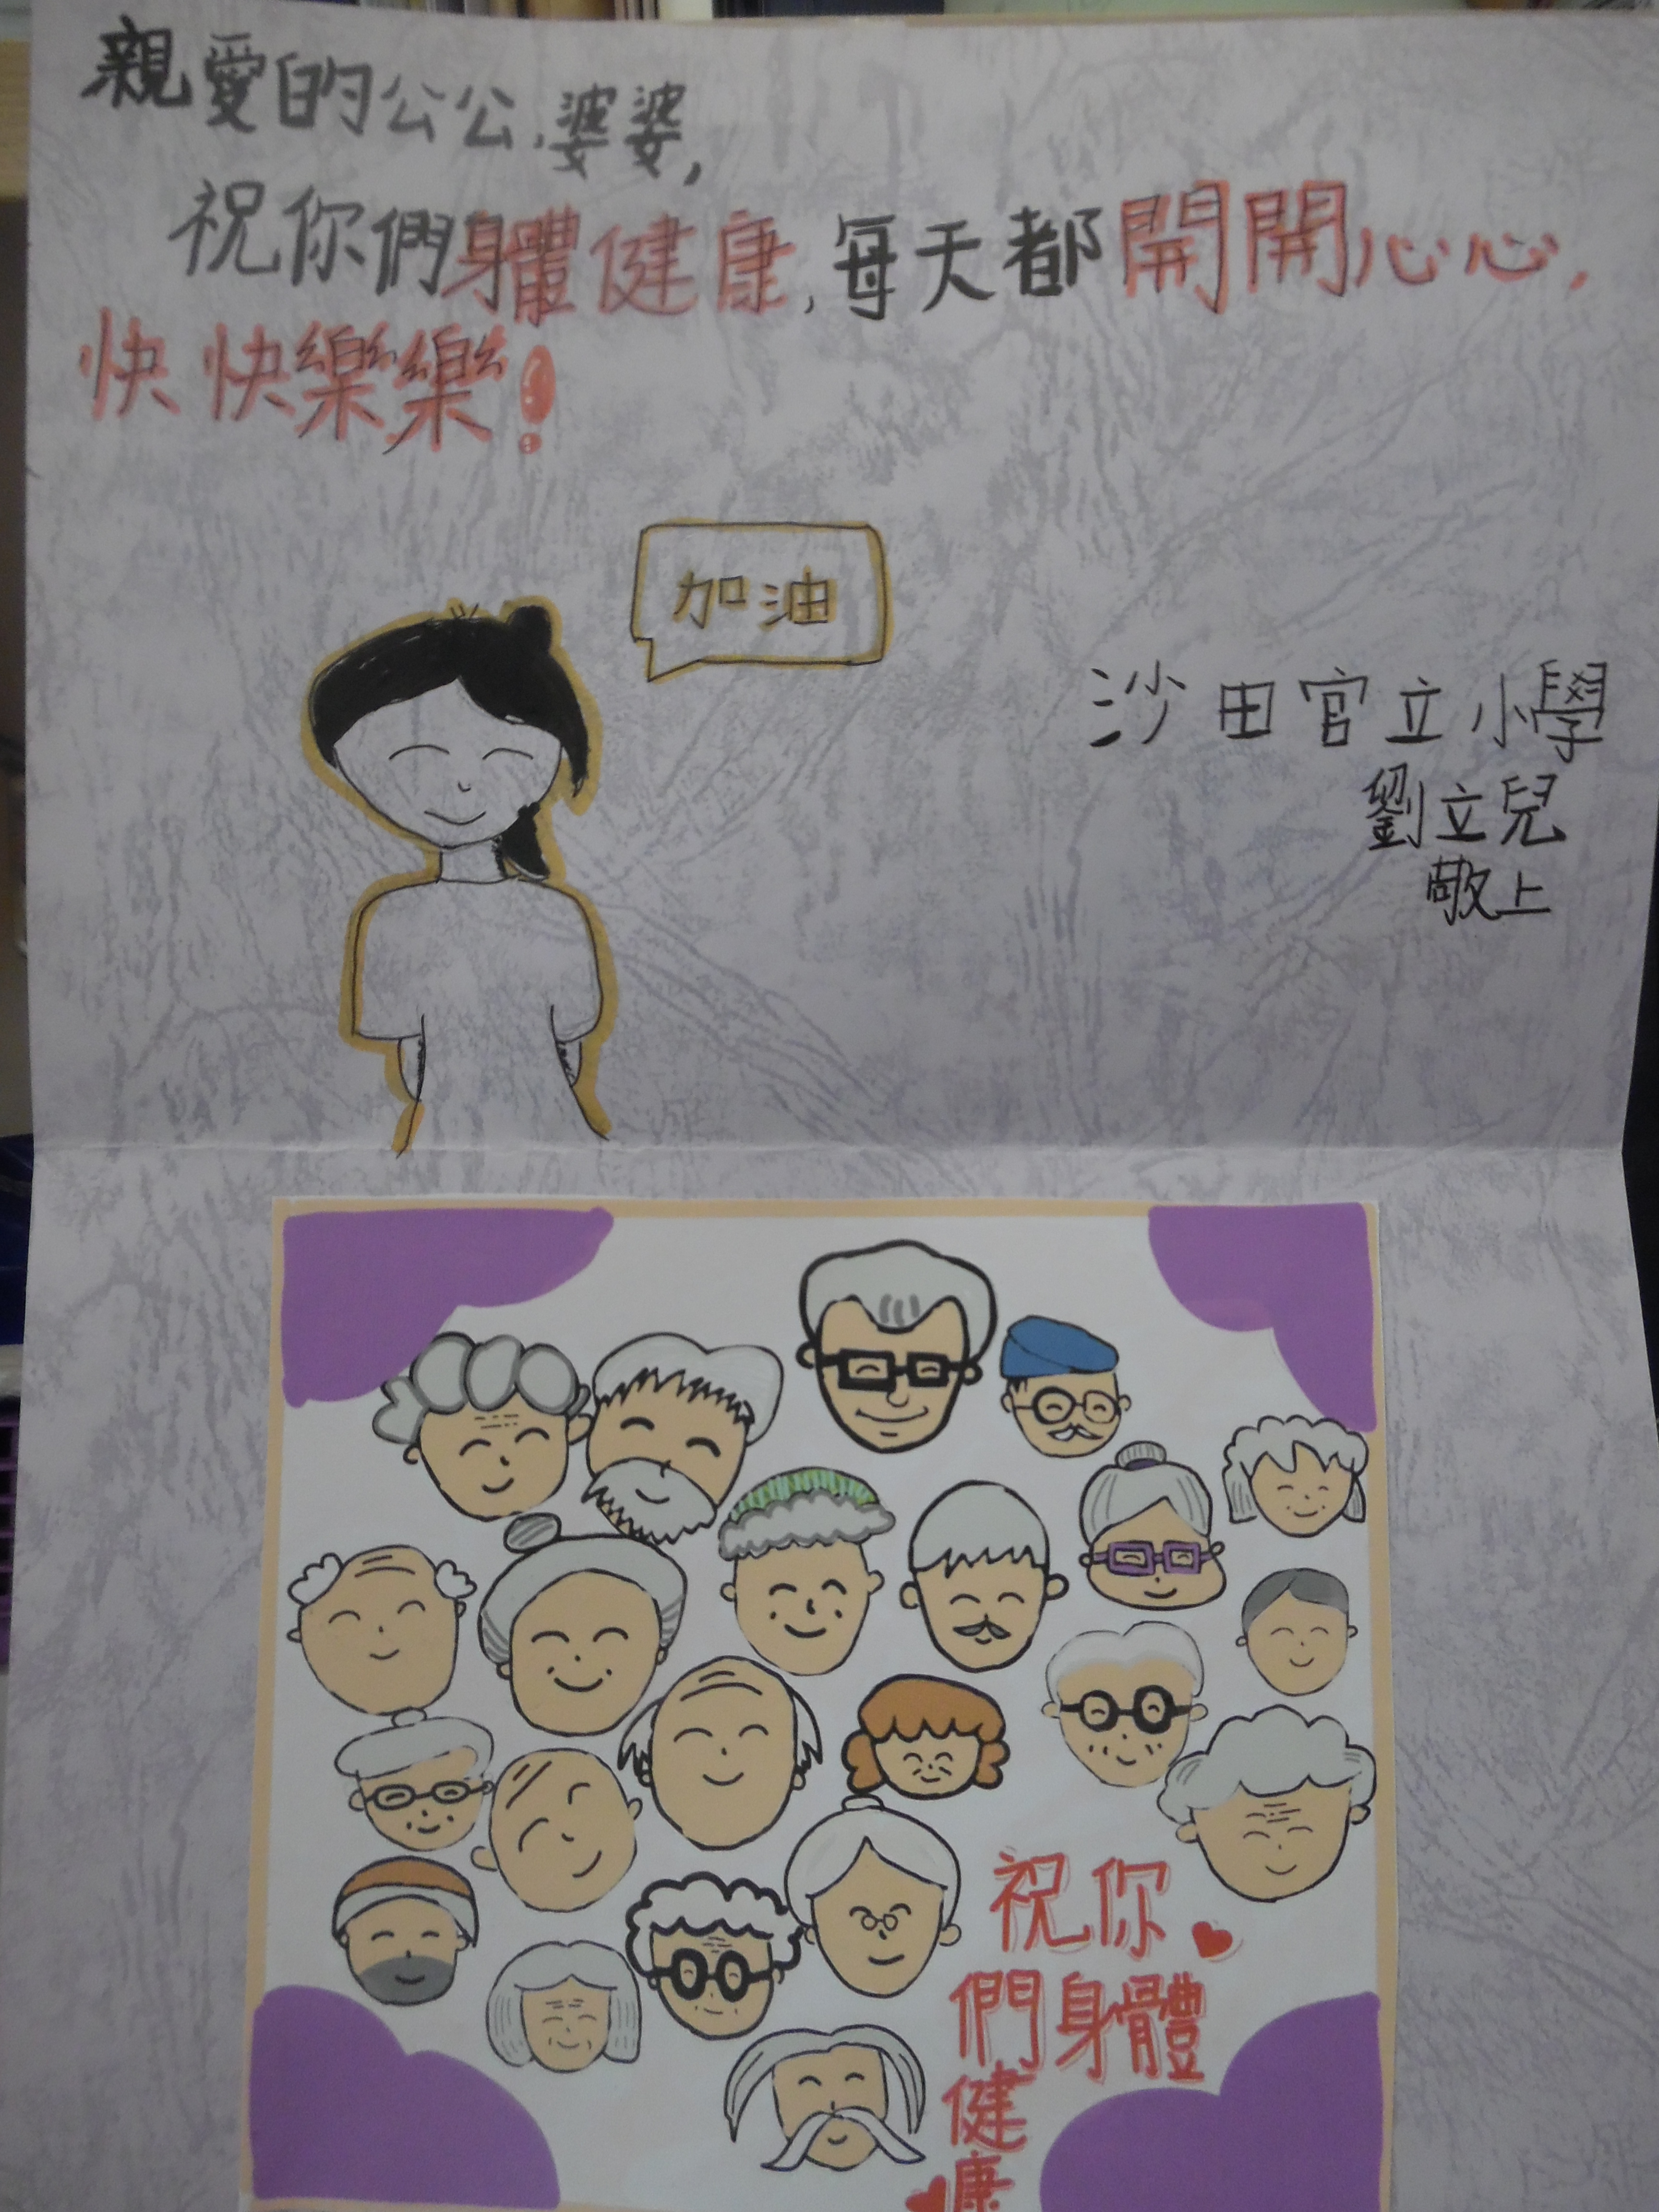 親愛的公公,婆婆,
祝你們身體健康,每天都開開心心,
快快樂樂!
加油
沙田官立小學
劉立兒
敬上
祝你
們身體
健
康